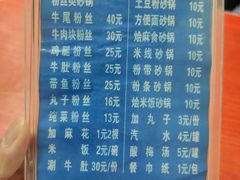 粉丝类砂锅
牛尾粉丝 40元
牛肉块粉丝 30元
鸡腿粉丝 25元
牛肚粉丝 25元
带鱼粉丝 25元
丸子粉丝 16元
纯菜粉丝 13元
加麻花 1元2根
米饭 2元/碗
涮牛肚 30元/份
土豆粉砂锅 10元
方便面砂锅 10元
烩麻食砂锅 10元
米线砂锅 10元
粉带砂锅 10元
粉条砂锅 10元
烩米饭砂锅 10元
加丸子 3元
汽水 4元/罐
酸梅汤 5元/罐
餐巾纸 1元/包